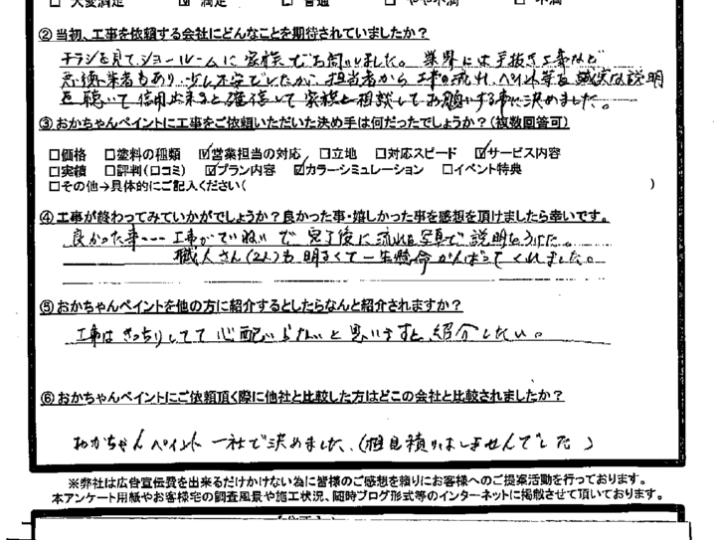 □大変満足 ☑満足 □普通 □やや不満 □不満
②当初、工事を依頼する会社にどんなことを期待されていましたか？
チラシを見てショールームに家族でお伺いしました。業界には手抜き工事など
悪徳業者もあり少し不安でしたが、担当者から工事の流れ、ペイント等を誠実な説明
を聴いて信用出来ると確信して家族と相談してお願いする事に決めました。
③おかちゃんペイントに工事をご依頼いただいた決め手は何だったでしょうか？(複数回答可)
□価格 □塗料の種類 ☑営業担当の対応 □立地 □対応スピード ☑サービス内容
□実績 □評判(口コミ) ☑プラン内容 ☑カラーシミュレーション □イベント特典
□その他→具体的にご記入ください( )
④工事が終わってみていかがでしょうか？良かった事・嬉しかった事を感想を頂けましたら幸いです。
良かった事--- 工事がていねいで完了後に流れを写真で説明をうけた。
職人さん(2人)も明るくて一生懸命がんばってくれました。
⑤おかちゃんペイントを他の方に紹介するとしたらなんと紹介されますか？
工事はきっちりしてて心配いらないと思いますと、紹介したい。
⑥おかちゃんペイントにご依頼頂く際に他社と比較した方はどこの会社と比較されましたか？
おかちゃんペイント一社で決めました、(相見積りはしませんでした)
※弊社は広告宣伝費を出来るだけかけない為に皆様のご感想を頼りにお客様へのご提案活動を行っております。
本アンケート用紙やお客様宅の調査風景や施工状況、随時ブログ形式等のインターネットに掲載させて頂いております。